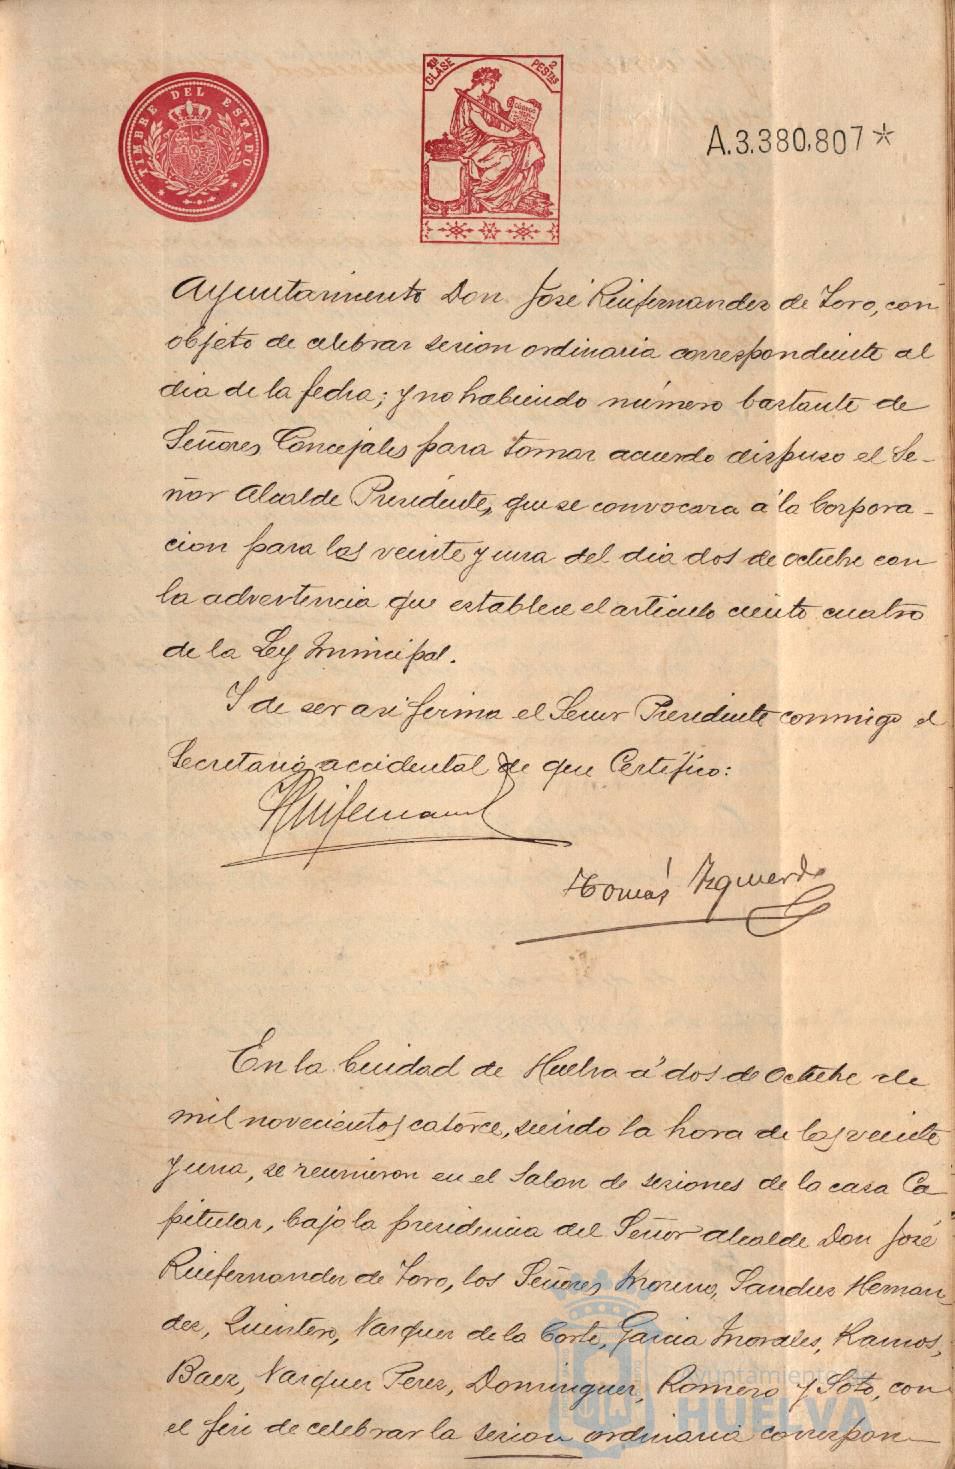 TIMBRE DEL ESTADO
10ª CLASE 2 PESTAS
A.3.380,807*
Ayuntamiento Don José Ruifernandez de Toro, con
objeto de celebrar sesion ordinaria correspondiente al
dia de la fecha; y no habiendo número bastante de
Señores Concejales para tomar acuerdo dispuso el Se-
ñor Alcalde Presidente, que se convocara á la Corpora-
cion para las veinte y una del dia dos de octubre con
la advertencia que establece el articulo ciento cuatro
de la Ley Municipal.
Y de ser asi firma el Señor Presidente conmigo el
Secretario accidental de que Certifico:
Ruifernand
Tomás Izquierdo
En la Ciudad de Huelva á dos de Octubre de
mil novecientos catorce, siendo la hora de las veinte
y una, se reunieron en el Salon de sesiones de la casa Ca
pitular, bajo la presidencia del Señor alcalde Don José
Ruifernandez de Toro, los Señores Moreno, Sanchez Hernan-
dez, Quintero, Vazquez de la Corte, Garcia Morales, Ramos,
Baez, Vazquez Perez, Dominguez, Romero y Soto, con
el fin de celebrar la sesion ordinaria correspon-
Ayuntamiento de
HUELVA